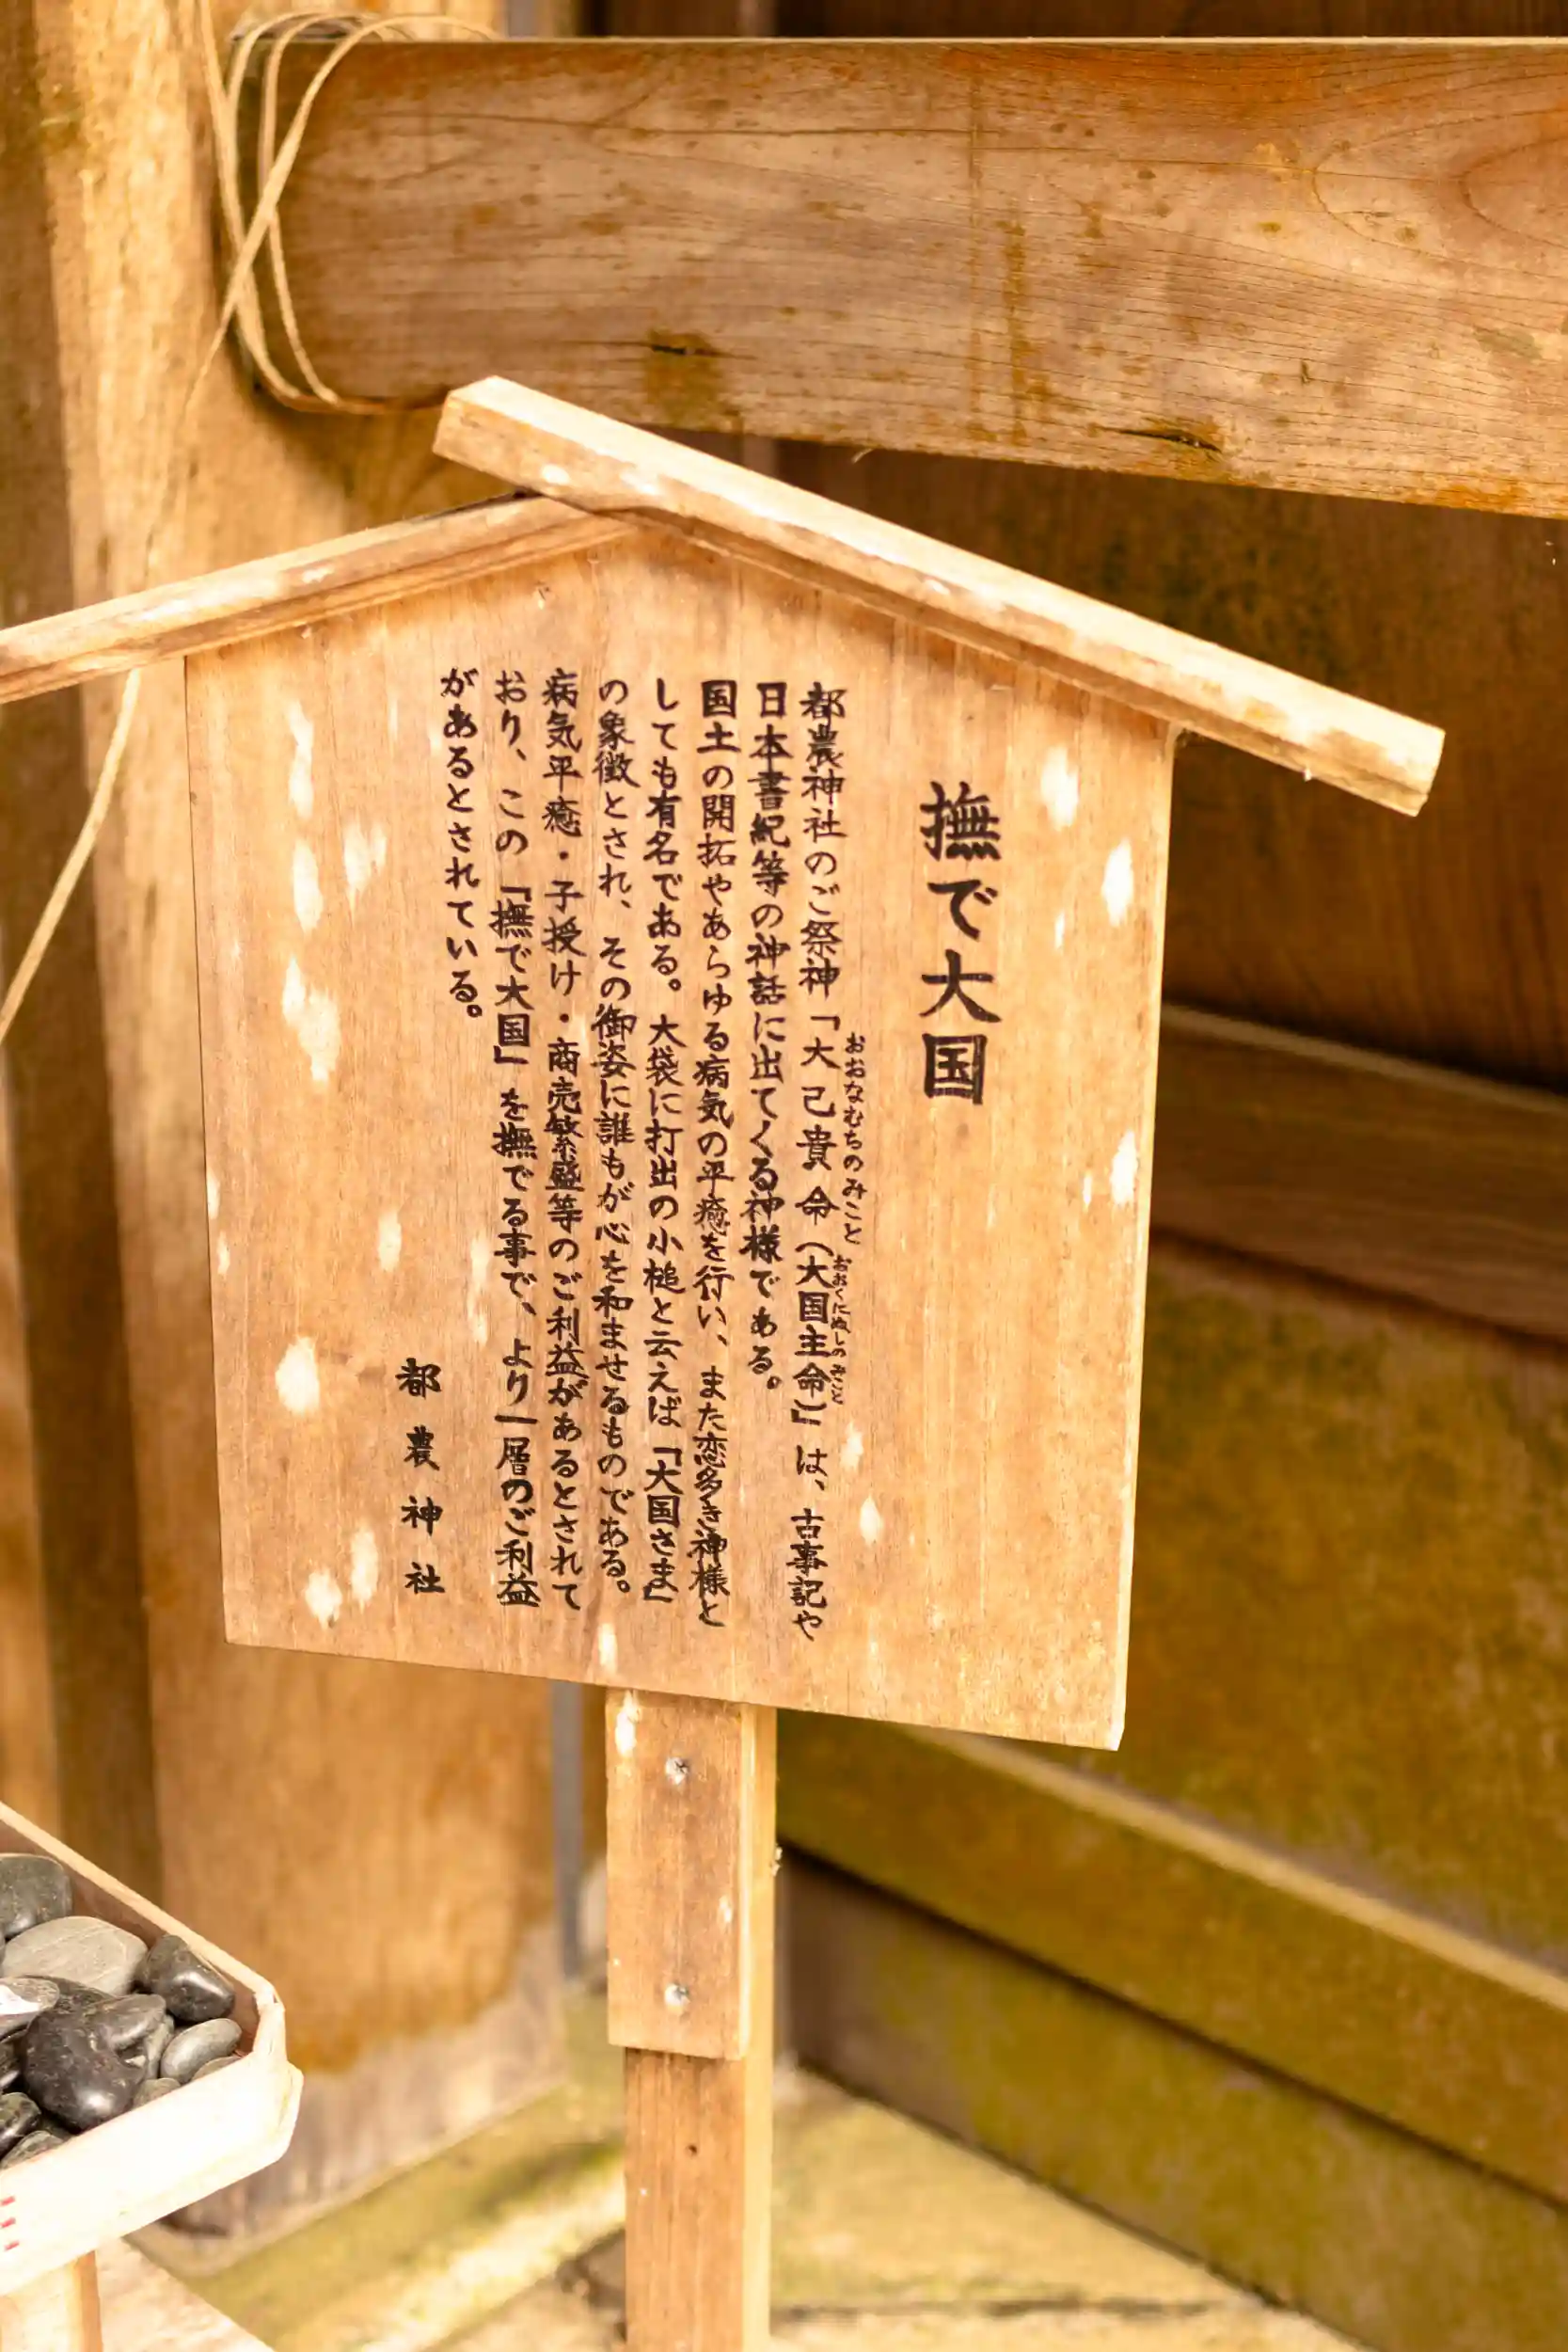 撫で大国
都農神社のご祭神「大己貴命(大国主命)」は、古事記や
おおなむちのみこと
おおくにぬしのみこと
日本書紀等の神話に出てくる神様である。
国土の開拓やあらゆる病気の平癒を行い、また恋多き神様と
しても有名である。大袋に打出の小槌と云えば「大国さま」
の象徴とされ、その御姿に誰もが心を和ませるものである。
病気平癒・子授け・商売繁盛等のご利益があるとされて
おり、この「撫で大国」を撫でる事で、より一層のご利益
があるとされている。
都農神社